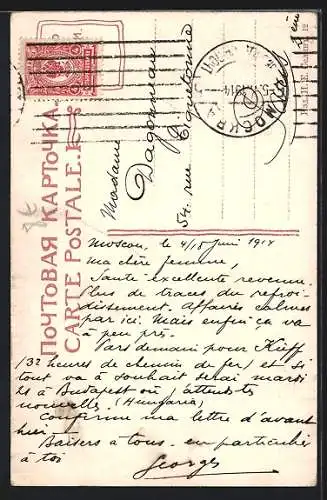 ПОЧТОВАЯ КАРТОЧКА
CARTE POSTALE.
МОСКВА
Madame
Dagonneau
54. rue Tiquetonne
Moscou, le 4/18 Juin 1914
Ma chère femme,
Santé excellente revenue.
Plus de traces du refroi-
dissement. Affaires calmes
par ici. Mais enfin ça va
à peu près.
Pars demain pour Kieff
(32 heures de chemin de fer) et si
tout va à souhait serai mardi
à Budapest où j'attends tes
nouvelles (Hungaria)
Confirme ma lettre d'avant
hier.
Baisers à tous. en particulier
à toi
Georges